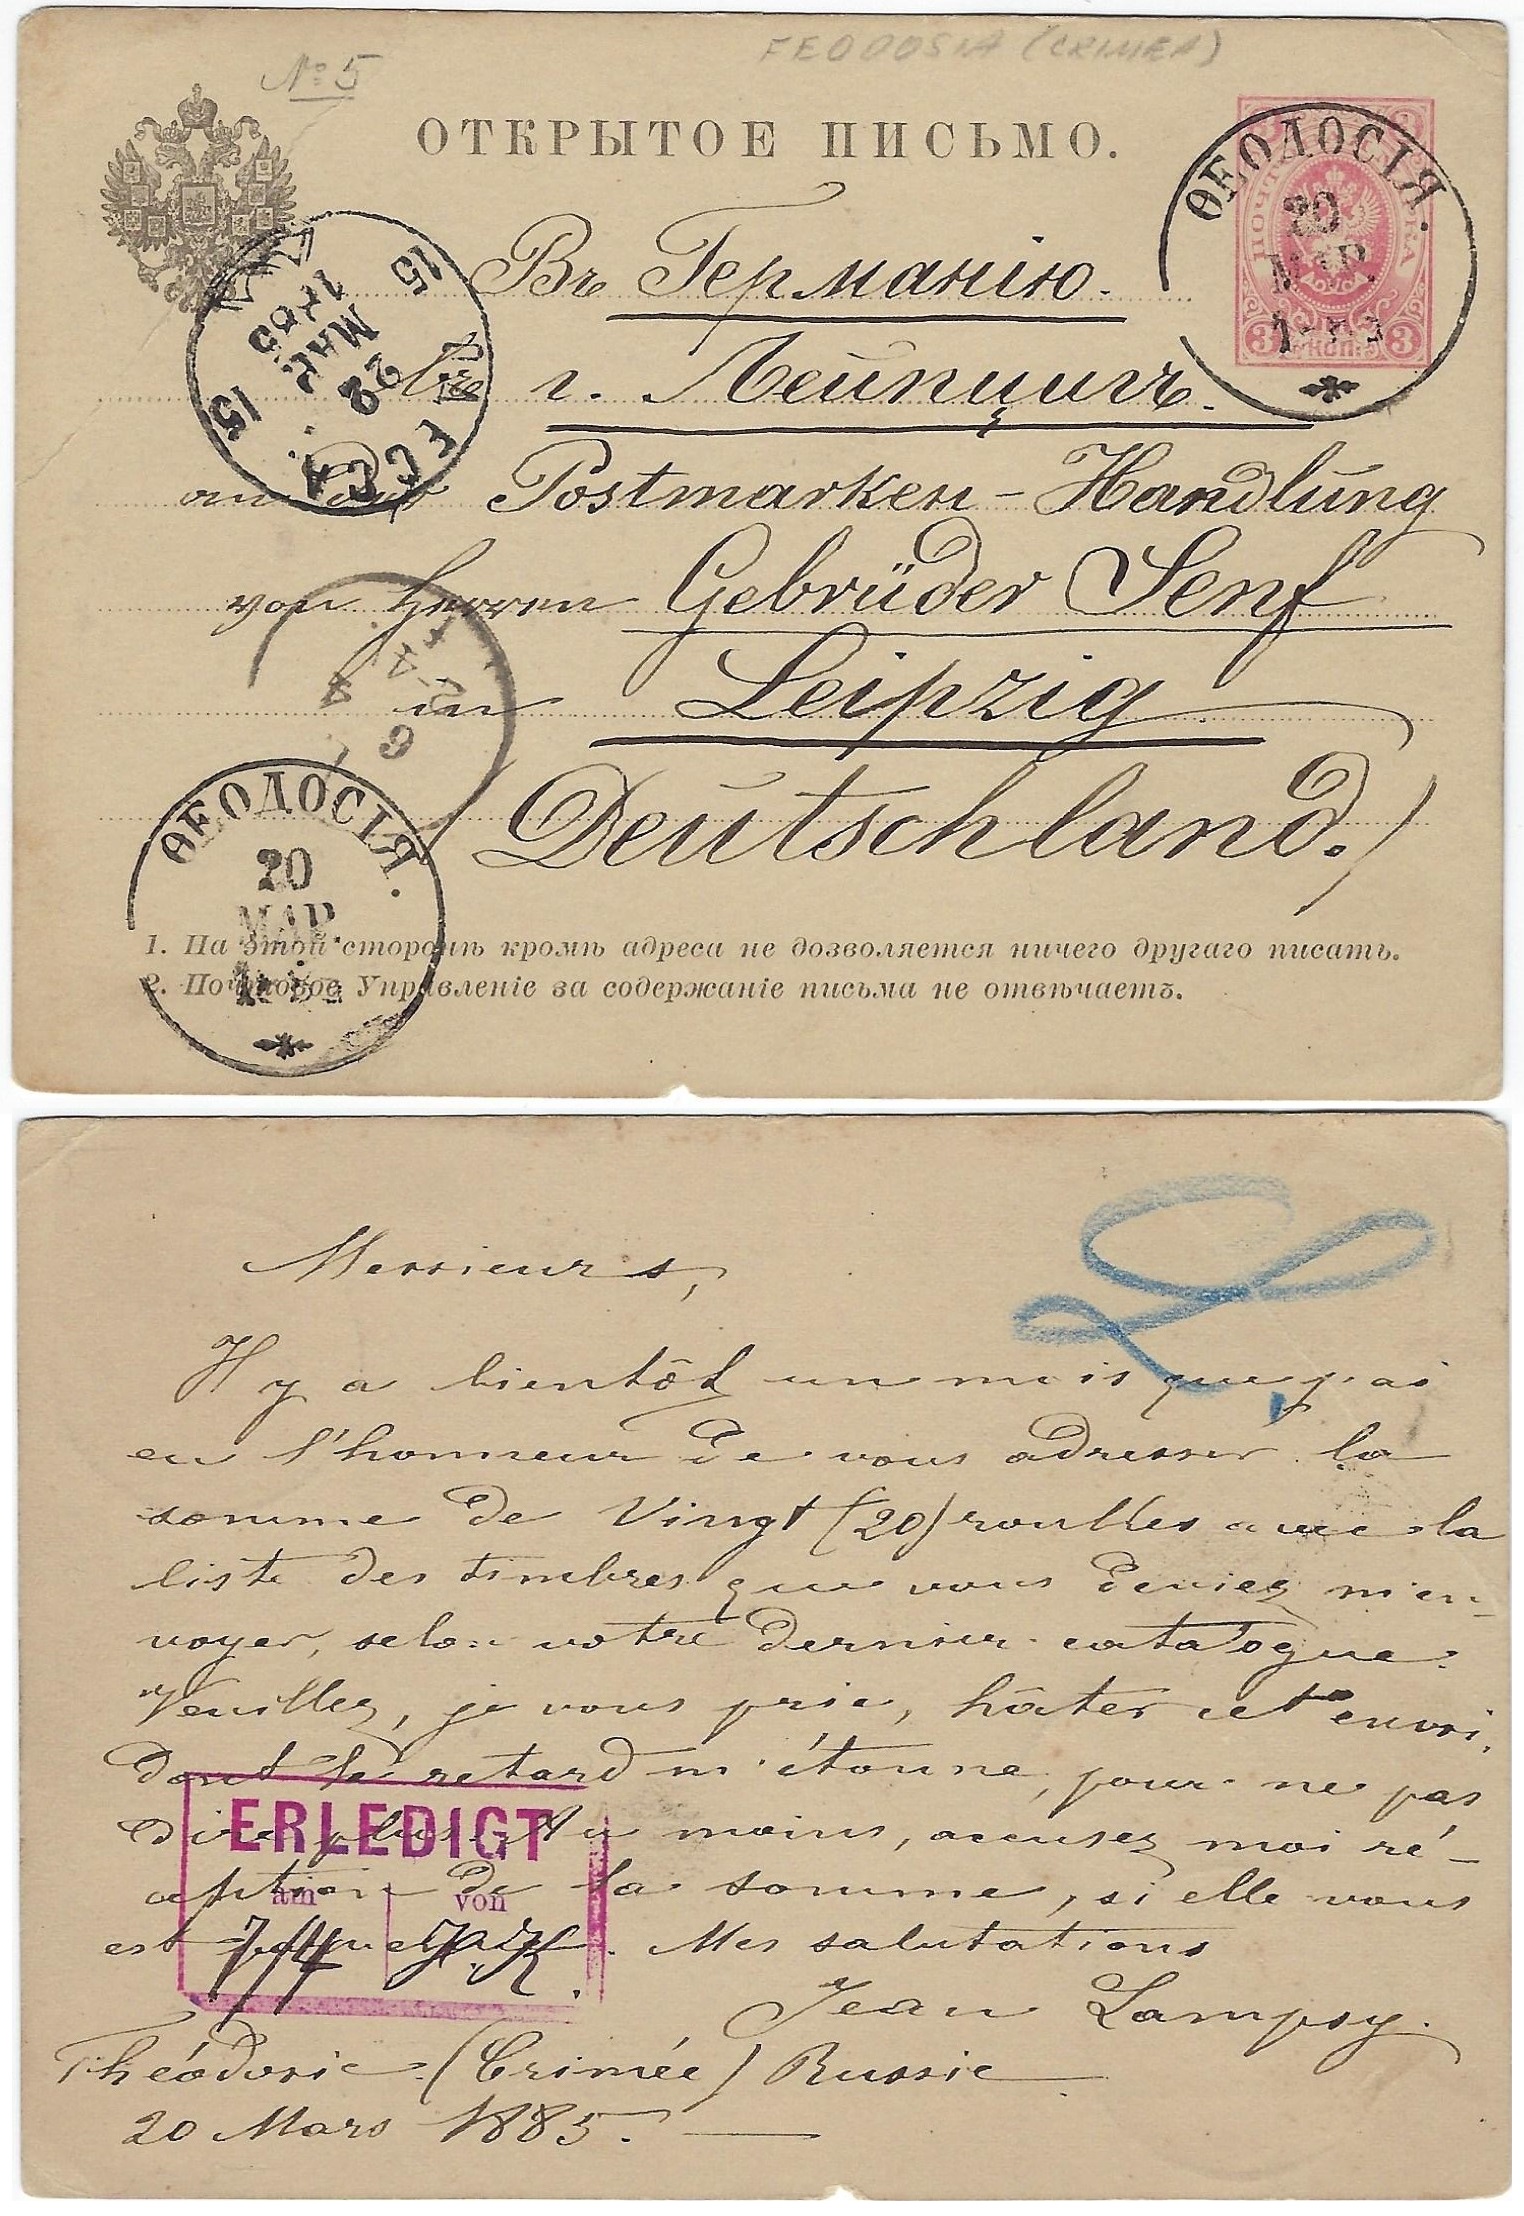 № 5
FEODOSIA (CRIMEA)
ОТКРЫТОЕ ПИСЬМО.
ѲЕОДОСІЯ.
20
МАР.
Въ Германію.
г. Лейпцигъ.
ОДЕССА
22
МАР
1885
15
15
Postmarken-Handlung
von Herren Gebrüder Senf
in Leipzig
(Deutschland.)
ѲЕОДОСІЯ.
20
МАР.
1. На этой сторонѣ кромѣ адреса не дозволяется ничего другаго писать.
2. Почтовое Управленіе за содержаніе письма не отвѣчаетъ.
Messieurs,
Il y a bientôt un mois que j'ai
eu l'honneur de vous adresser la
somme de Vingt (20) roubles avec la
liste des timbres que vous deviez m'en-
voyer, selon votre dernier catalogue.
Veuillez, je vous prie, hâter cet envoi,
dont le retard m'étonne, pour ne pas
dire plus. Au moins, accusez moi ré-
ception de la somme, si elle vous
est parvenue. Mes salutations
ERLEDIGT
am von
7/4
Jean Lampsy.
Théodosie (Crimée) Russie
20 Mars 1885.